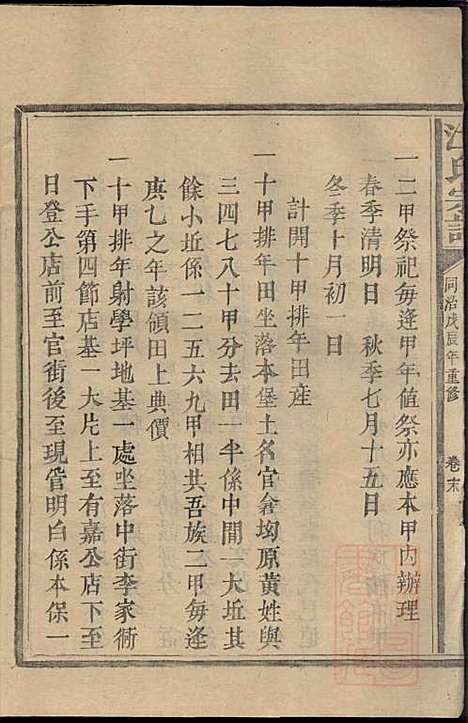 氏宗譜 同治戊辰年重修 卷末
一二甲祭祀每逢甲年值祭亦應本甲內辦理
春季清明日 秋季七月十五日
冬季十月初一日
計開十甲排年田產
一十甲排年田坐落本堡土名官倉坳原黃姓與
三四七八十甲分去田一半係中間一大坵其
餘小坵係一二五六九甲相共吾族二甲每逢
庚乙之年該領田上典價
一十甲排年射學坪地基一處坐落中街李家衕
下手第四節店基一大片上至有嘉公店下至
日登公店前至官街後至現管明白係本保一